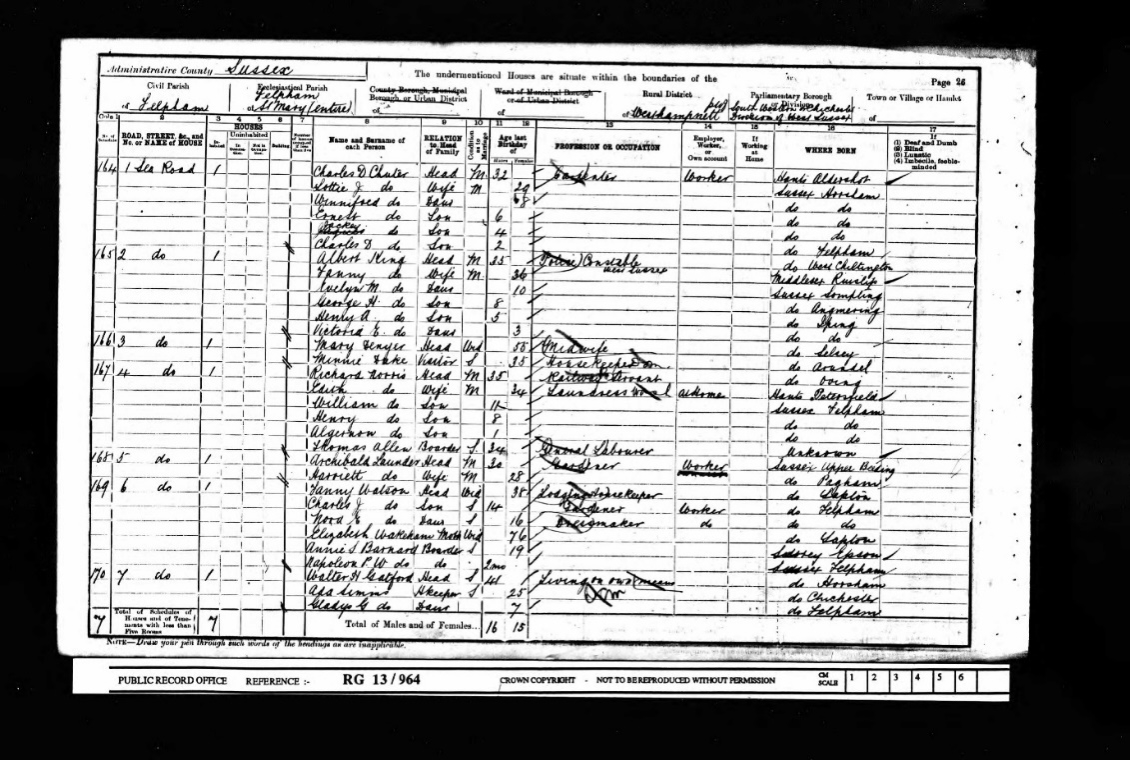 Administrative County Sussex
The undermentioned Houses are situate within the boundaries of the
Page 26
Civil Parish
of Felpham
Ecclesiastical Parish
Felpham
of St Mary (entire)
County Borough, Municipal Borough, or Urban District
of
Ward of Municipal Borough or of Urban District
of
Rural District
of Westhampnett
Parliamentary Borough or Division
South Western Division of West Sussex
Town or Village or Hamlet
of
ROAD, STREET, &c., and No. or NAME of HOUSE
HOUSES
Uninhabited
Name and Surname of each Person
RELATION to Head of Family
Condition as to Marriage
Age last Birthday of
PROFESSION OR OCCUPATION
Employer, Worker, or Own account
If Working at Home
WHERE BORN
If (1) Deaf and Dumb (2) Blind (3) Lunatic (4) Imbecile, feeble-minded
164 1 Sea Road 1 Charles D Chuter Head M 32 Carpenter Worker Hants Aldershot
Lottie J do Wife M 29 Sussex Horsham
Winnifred do Daur 8 do do
Ernest do Son 6 do do
do Son 4 do do
Charles D do Son 2 do Felpham
165 2 do 1 Albert King Head M 35 Police Constable West Sussex do West Chiltington
Fanny do Wife M 36 Middlesex Ruislip
Evelyn M. do Daur 10 Sussex Sompting
George H. do Son 8 do Angmering
Henry A. do Son 5 do Iping
Victoria E. do Daur 3 do do
166 3 do 1 Mary Henyer Head Wid 58 Midwife do Selsey
Minnie Lake Visitor S 35 Housekeeper Dom do Arundel
167 4 do 1 Richard Norris Head M 35 Railway Servant do Oving
Edith do Wife M 34 Laundress at Home Hants Petersfield
William do Son 11 Sussex Felpham
Henry do Son 8 do do
Algernon do Son 1 do do
Thomas Allen Boarder S 34 General Labourer Unknown
168 5 do 1 Archibald Launder Head M 30 Gardener Worker Sussex Upper Beeding
Harriett do Wife M 28 do Pagham
169 6 do 1 Fanny Watson Head Wid 38 Lodging House keeper do
Charles J. do Son S 14 Gardener Worker do Felpham
Nora E do Daur S 16 Dressmaker do do do
Elizabeth Wakeham Moth Wid 76 do
Annie S Barnard Boarder S 19 Surrey Epsom
Napoleon P. W. do do 2mo Sussex Felpham
170 7 do 1 Walter H Gatford Head S 41 Living on own means do Horsham
Ada Simms Hkeeper S 25 do Chichester
Gladys G do Daur 7 do Felpham
7 Total of Schedules of Houses and of Tenements with less than Five Rooms 7 Total of Males and of Females... 16 15
NOTE—Draw your pen through such words of the headings as are inapplicable.
PUBLIC RECORD OFFICE REFERENCE :- RG 13/964 CROWN COPYRIGHT - NOT TO BE REPRODUCED WITHOUT PERMISSION CM SCALE 1 2 3 4 5 6